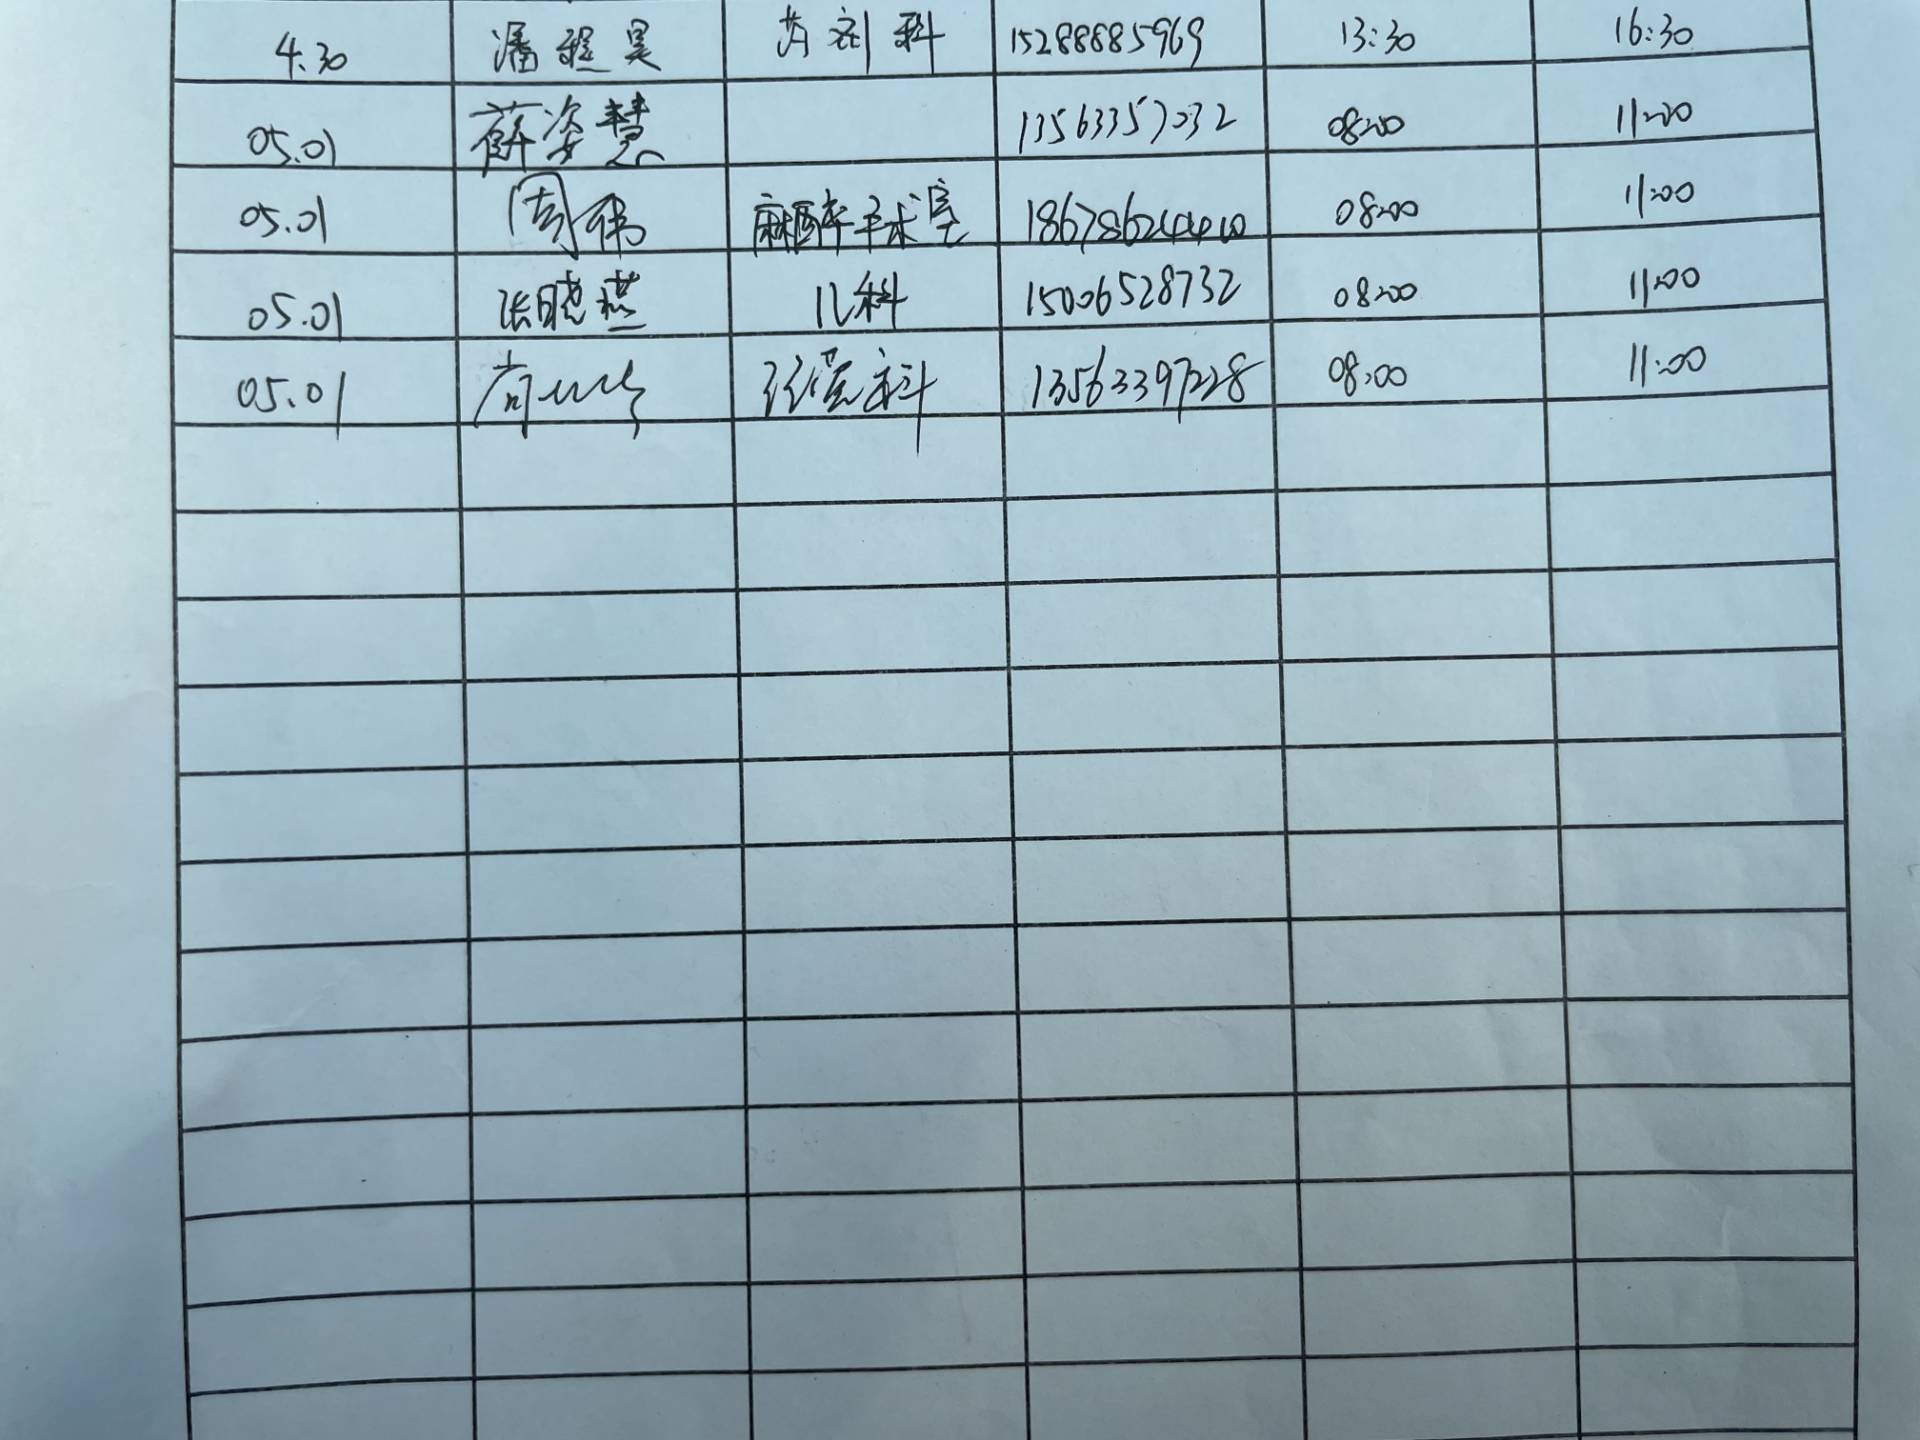 4.30 潘程昊 药剂科 15288885969 13:30 16:30
05.01 薛姿慧 13563357032 08:00 11:00
05.01 周伟 麻醉手术室 18678624410 08:00 11:00
05.01 张晓燕 儿科 15006528732 08:00 11:00
05.01 13563397228 08:00 11:00